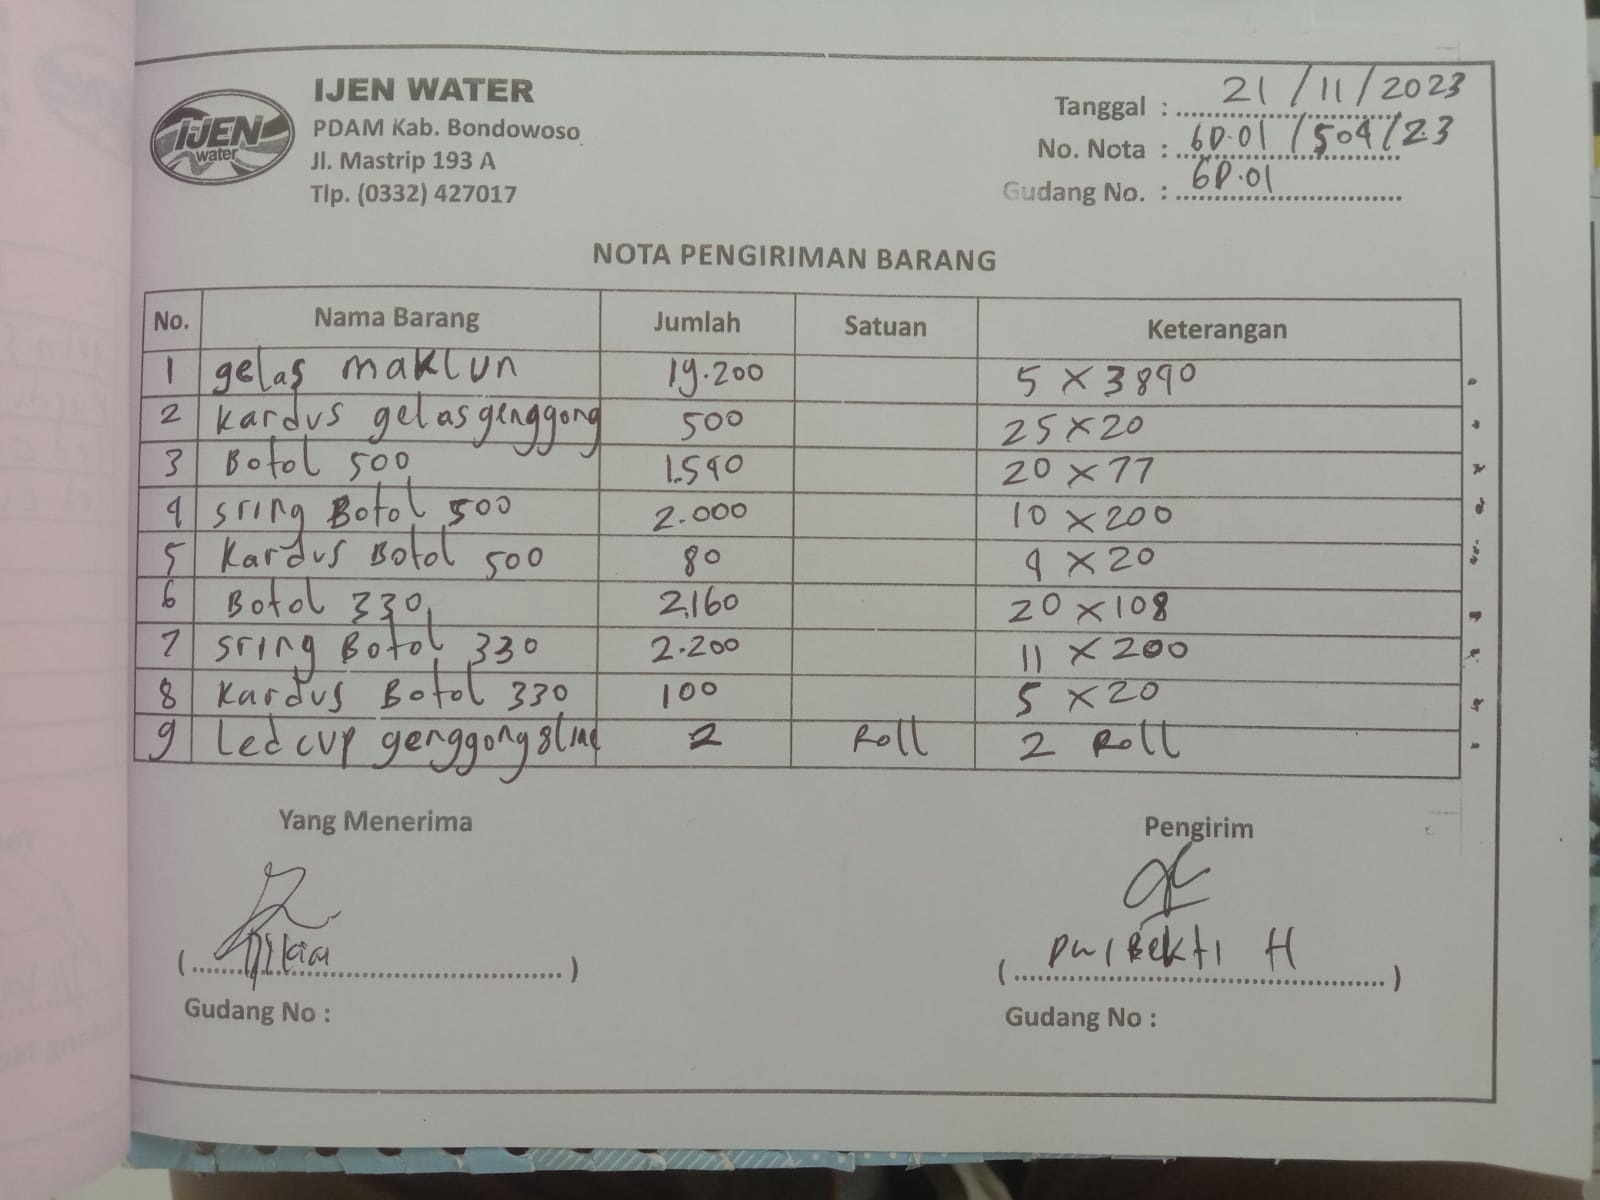 IJEN WATER
PDAM Kab. Bondowoso
Jl. Mastrip 193 A
Tlp. (0332) 427017
IJEN
water
Tanggal : 21 / 11 / 2023
No. Nota : GD.01 / 504 / 23
Gudang No. : GD.01
NOTA PENGIRIMAN BARANG
No. Nama Barang Jumlah Satuan Keterangan
1 gelas maklun 19.200 5 x 3840
2 kardus gelas genggong 500 25 x 20
3 Botol 500 1.540 20 x 77
4 sring Botol 500 2.000 10 x 200
5 Kardus Botol 500 80 4 x 20
6 Botol 330 2.160 20 x 108
7 sring Botol 330 2.200 11 x 200
8 Kardus Botol 330 100 5 x 20
9 Led cup genggong 2 Roll 2 Roll
Yang Menerima
Pengirim
Dwi Bekti H
Gudang No :
Gudang No :